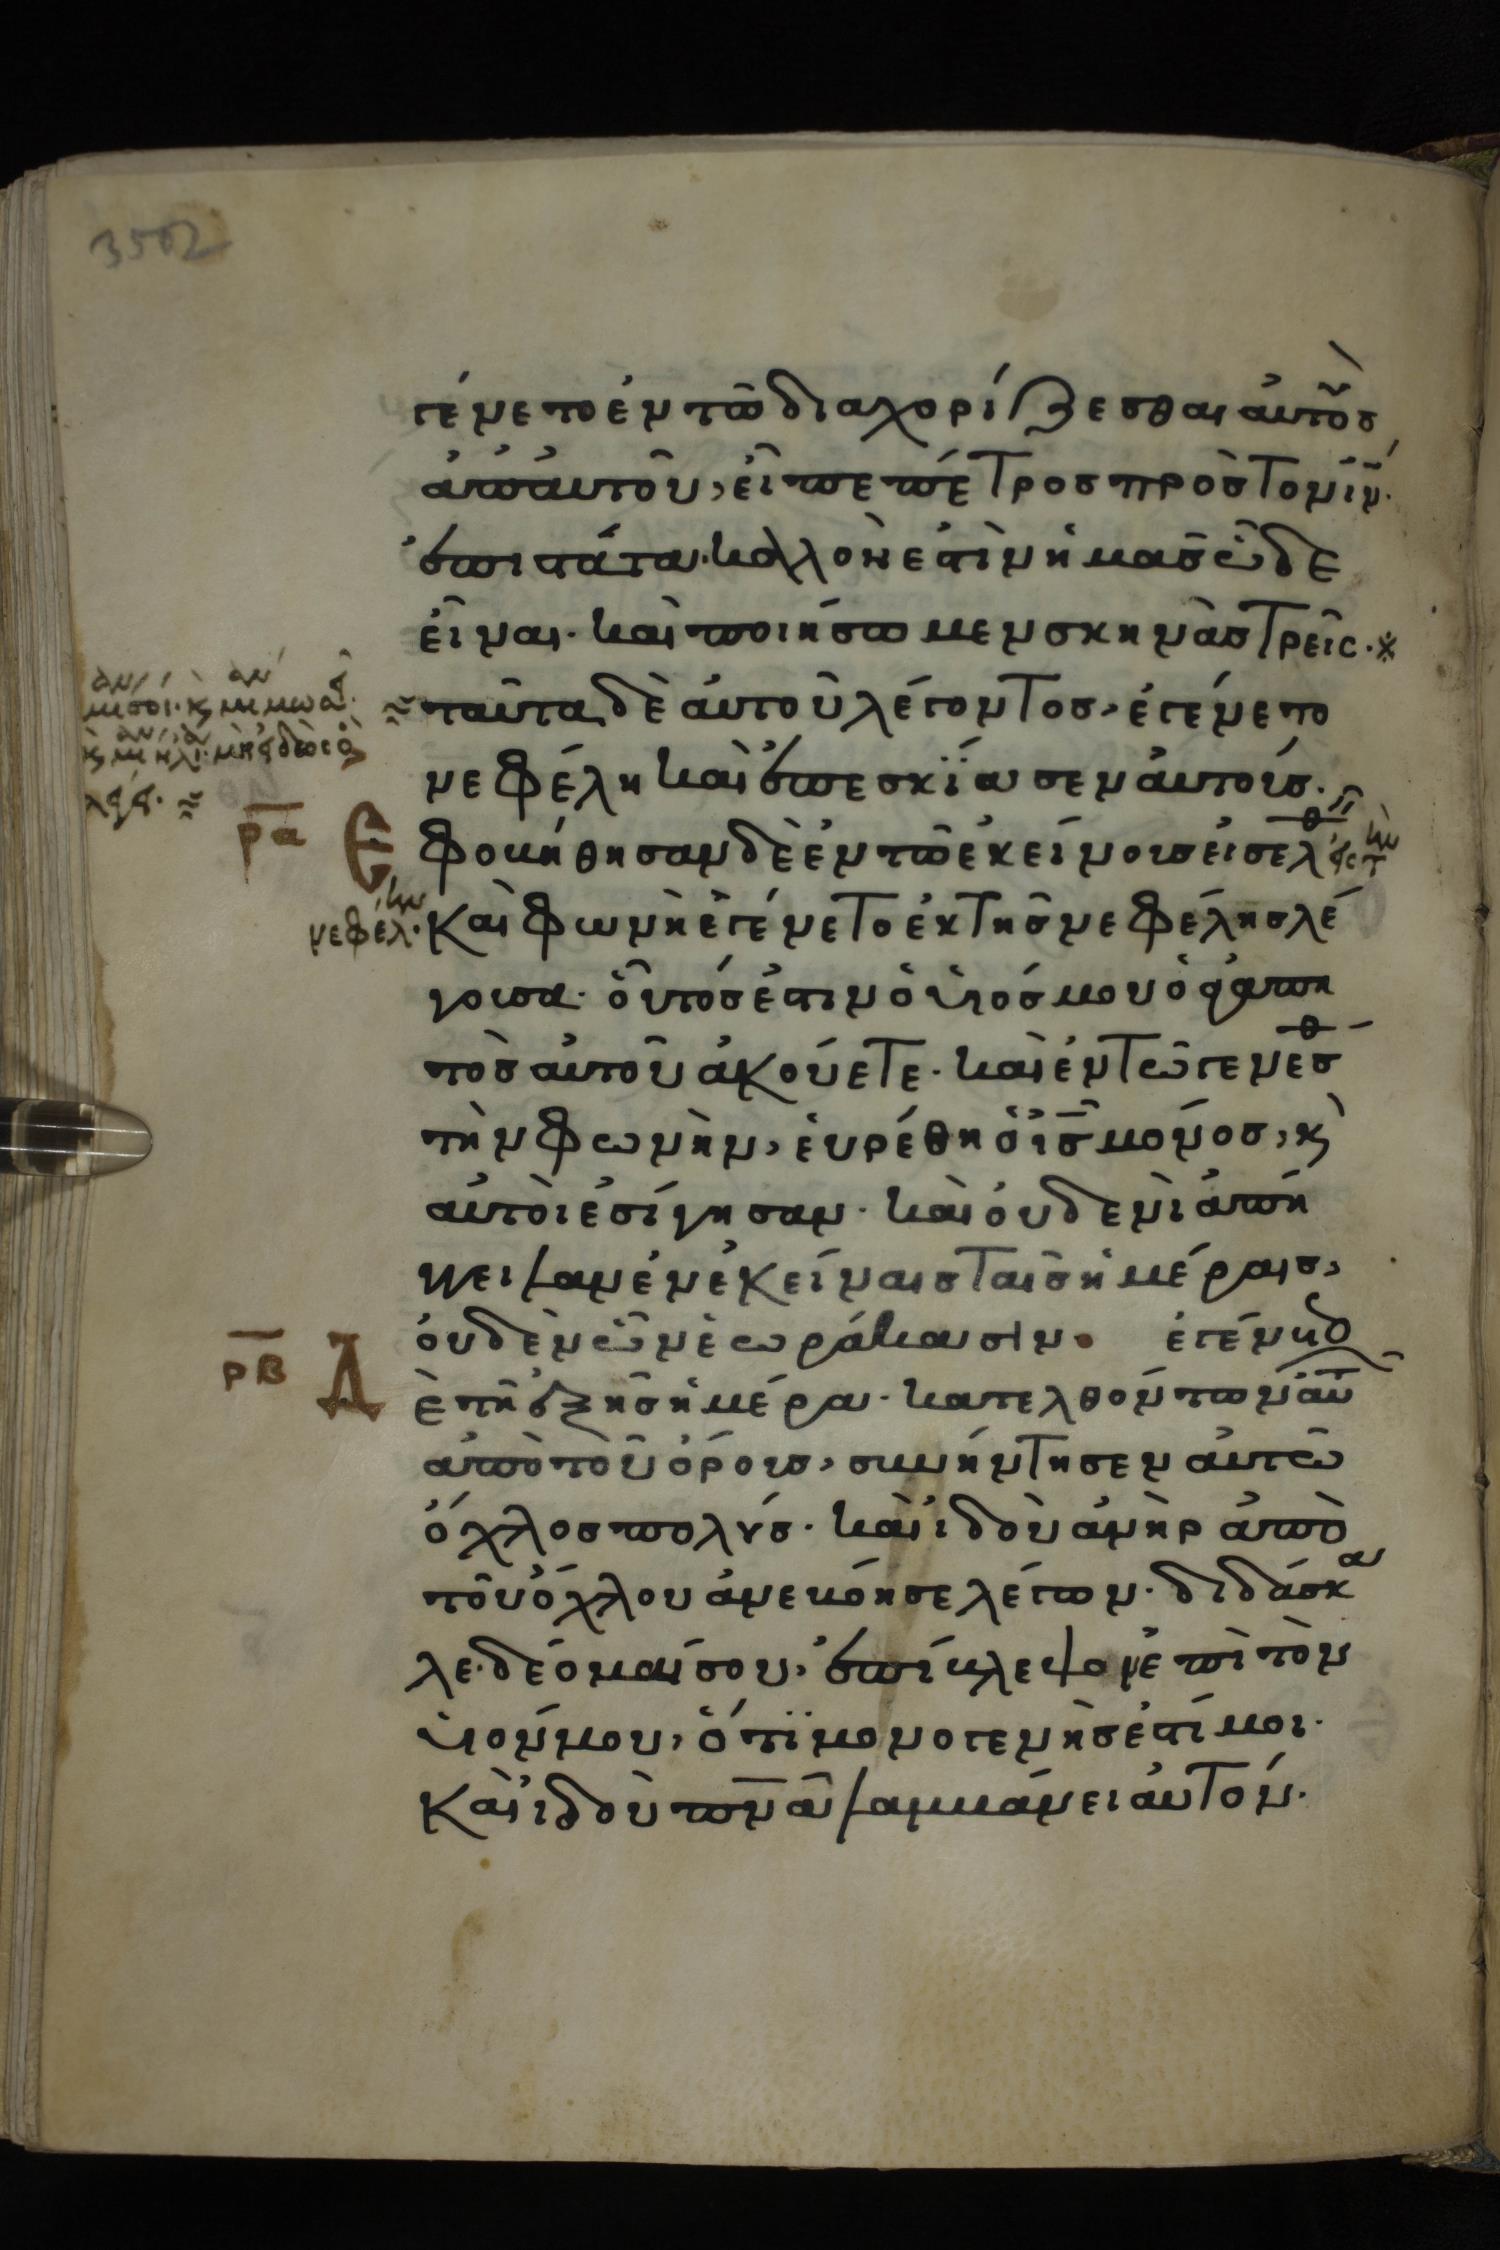 3502
γένετο ἐν τῶ διαχορίζεσθαι ἀυτοὺσ
ἀπ᾽ ἀυτοῦ, εἶπε πέτροσ πρὸσ τὸν ιν̅.
ἐπιστάτα. καλλόν ἐστιν ἡμᾶσ ὧδε
εἶναι. καὶ ποιήσωμεν σκηνὰσ τρεῖς. ※
μίαν σοι. κ̀ μίαν μωσῆ.
ταῦτα δὲ ἀυτοῦ λέγοντοσ, ἐγένετο
κ̀ μίαν ἠλία. μὴ εἰδὼσ ὃ
λέγει.
νεφέλη καὶ ἐπεσκΐασεν ἀυτούσ.
ρα
Ε
φοβήθησαν δὲ ἐν τῶ ἐκείνουσ εἰσελθεῖν εἰσ τὴν
νεφέλην.
καὶ φωνὴ ἐγένετο ἐκ τῆσ νεφέλησ λέ
γουσα. οὗτόσ ἐστιν ὁ υἱόσ μου ὁ ἀγαπη
τὸσ ἀυτοῦ ἀκούετε. καὶ ἐν τῶ γενέσθ
τὴν φωνὴν, ἑυρέθη ὁ ισ̅ μονοσ, κ̀
ἀυτοὶ ἐσίγησαν. καὶ ὀυδενὶ ἀπή
γγειλαν ἐν ἐκείναισ ταῖσ ἡμέραισ,
ὀυδὲν ὧν ἑωράκασιν. ἐγέν δ
ρβ
Δ
ὲ τῆ ἑξῆσ ἡμέρα. κατελθόντων ἀυτῶν
ἀπὸ τοῦ ὄρουσ, συνήντησεν ἀυτῶ
ὄχλοσ πολύσ. καὶ ἰδοὺ ἀνὴρ ἀπὸ
τοῦ ὄχλου ἀνεβόησε λέγων. διδάσκα
λε. δέομαί σου, ἐπίβλεψον ἐπὶ τὸν
υἱόν μου, ὅτϊ μονογενὴσ ἐστί μοι.
καὶ ἰδοὺ πνα̅ λαμβάνει ἀυτόν.